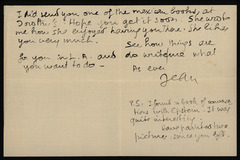 I did send you one of the mexican books, at
Hope you get it soon. She wrote
me how she enjoyed having you there. She likes
you very much. See how things are
for you in L.A. and do write me what
you want to do -
As ever
Jean
P.S. I found a book of conversa-
tions with Epstein. It was
quite interesting.
Have painted two
pictures since you left.